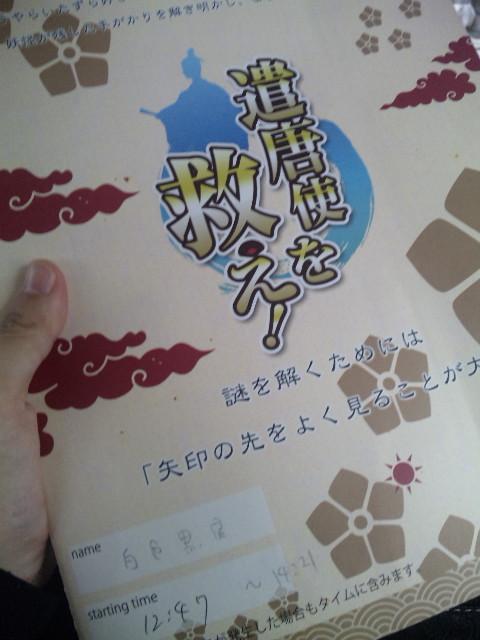 やらいたずら好き
妖怪が残した手がかりを解き明かし、
遣唐使を
救え!
謎を解くためには
「矢印の先をよく見ることが大
name 白色黒
starting time 12:47 ~14:21
が発生した場合もタイムに含みます